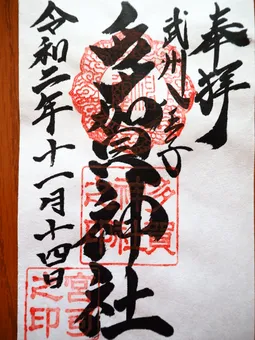 奉拝
武州八王子
多賀神社
令和二年十一月十四日
多賀
神社
之印
宮司
之印